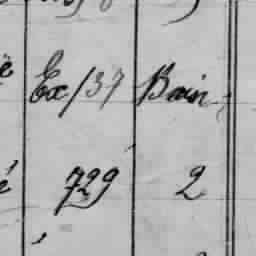 Ex/37 Bain
729 2